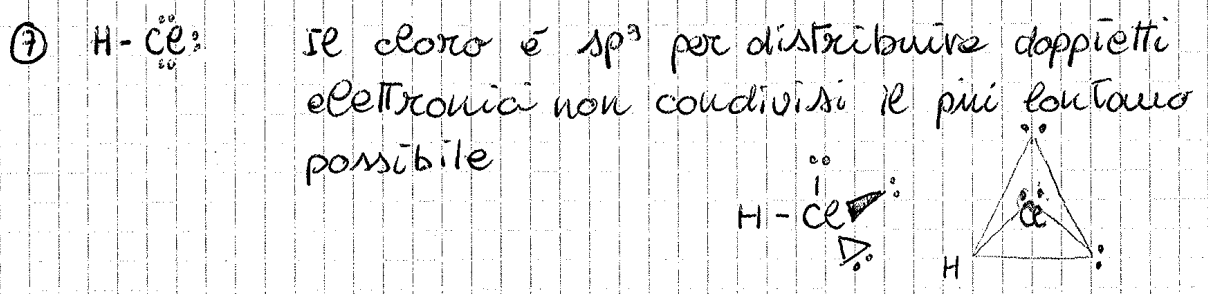 ⑦ H-Cl: Il cloro è sp³ per distribuire doppietti
elettronici non condivisi il più lontano
possibile
H-Cl
Cl
H